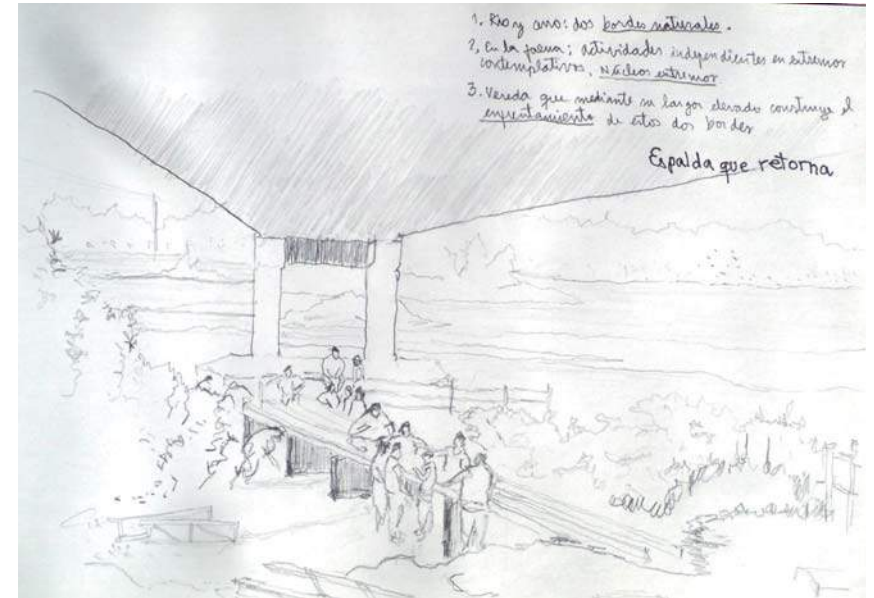 1. Río y : dos bordes naturales.
2, En la faena; actividades independientes en extremos
contemplativos, Núcleos extremos
3. Vereda que mediante su largor elevado construye el
enfrentamiento de estos dos bordes
Espalda que retorna